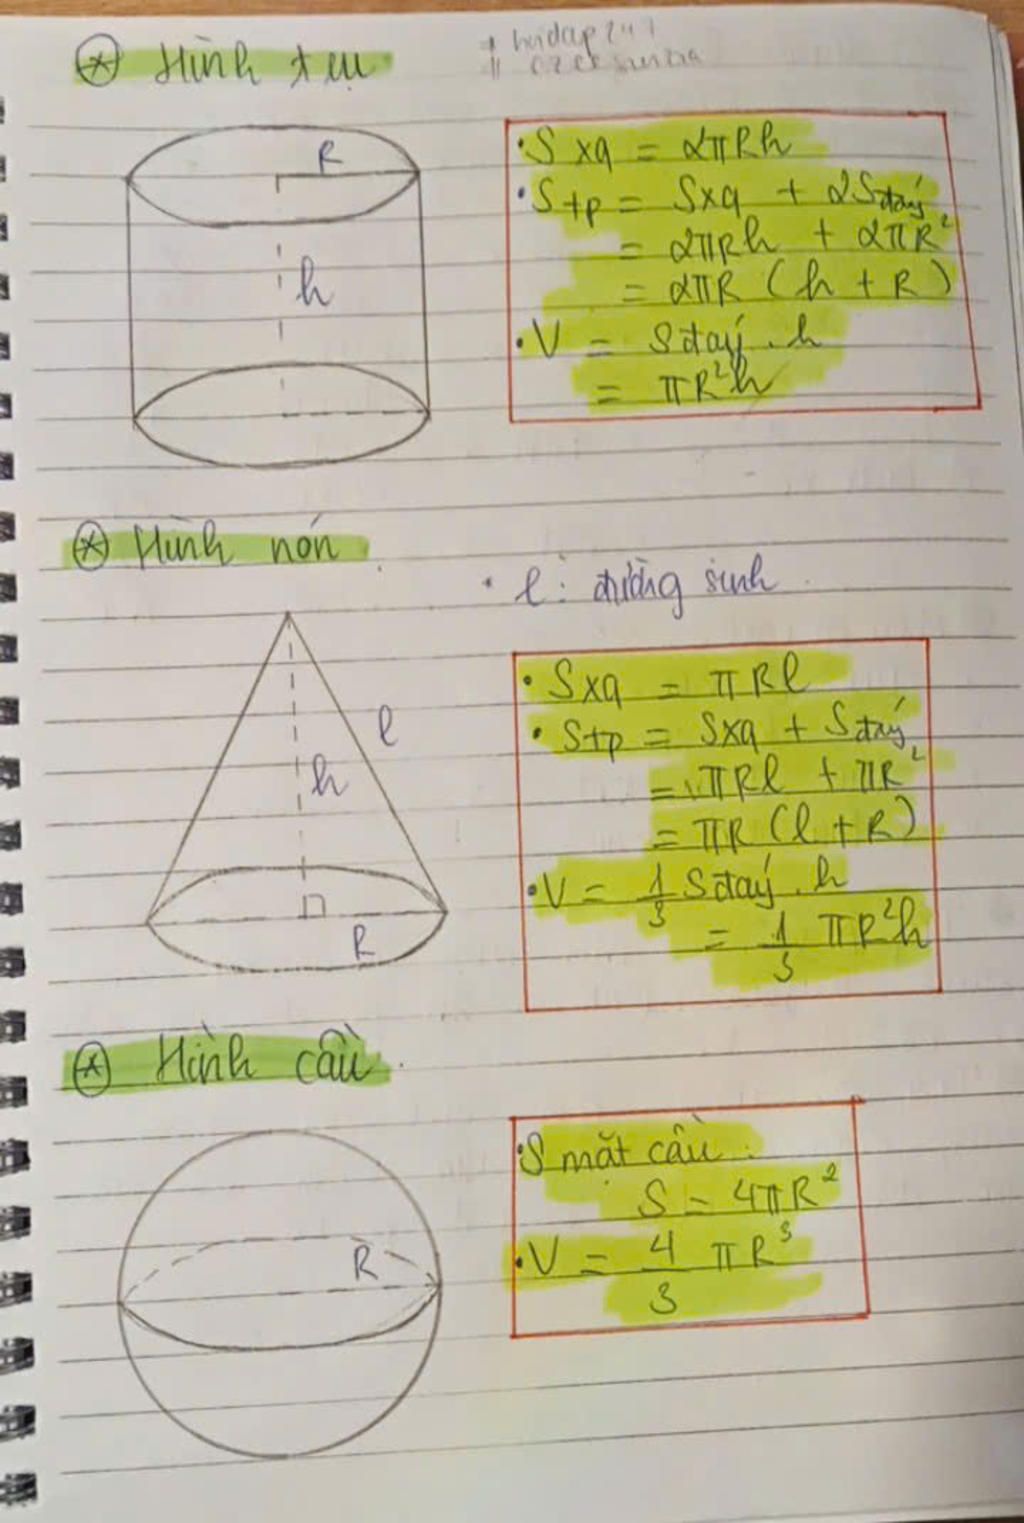 ⊛ Hình trụ
# hoidap247
R
h
• Sxq = 2πRh
• Stp = Sxq + 2Sđáy
= 2πRh + 2πR²
= 2πR (h + R)
• V = Sđáy . h
= πR²h
⊛ Hình nón
• l : đường sinh
l
h
R
• Sxq = πRl
• Stp = Sxq + Sđáy
= πRl + πR²
= πR (l + R)
• V = 1/3 Sđáy . h
= 1/3 πR²h
⊛ Hình cầu
R
• S mặt cầu :
S = 4πR²
• V = 4/3 πR³